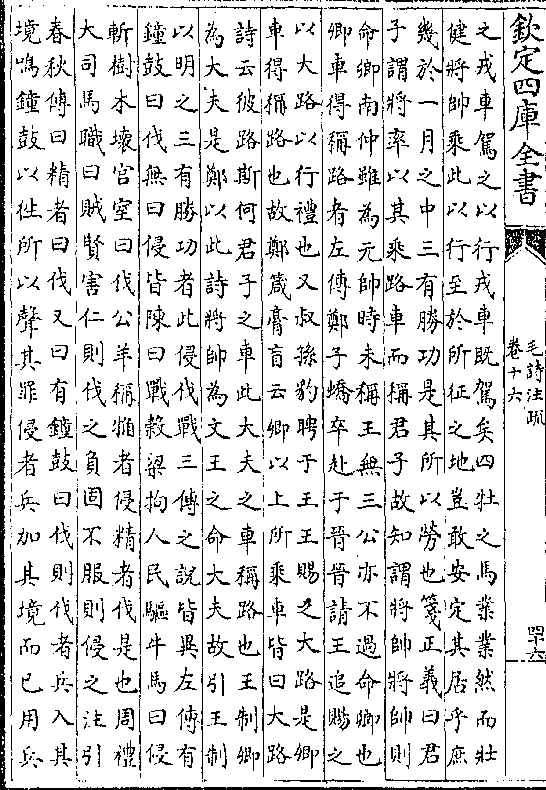 欽定四庫全書
毛詩注疏
卷十六
四十六
之戎車駕之以行戎車既駕矣四牡之馬業業然而壯
健將帥乘此以行至於所征之地豈敢安定其居乎庶
幾於一月之中三有勝功是其所以勞也箋正義曰君
子謂將率以其乘路車而稱君子故知謂將帥將帥則
命卿南仲雖為元帥時未稱王無三公亦不過命卿也
卿車得稱路者左傳鄭子蟜卒赴于晉晉請王追賜之
以大路以行禮也又叔孫豹聘于王王賜之大路是卿
車得稱路也故鄭箴膏肓云卿以上所乘車皆曰大路
詩云彼路斯何君子之車此大夫之車稱路也王制卿
為大夫是鄭以此詩將帥為文王之命大夫故引王制
以明之三有勝功者此侵伐戰三傳之說皆異左傳有
鐘鼓曰伐無曰侵皆陳曰戰穀梁拘人民驅牛馬曰侵
斬樹木壞宮室曰伐公羊稱觕者侵精者伐是也周禮
大司馬職曰賊賢害仁則伐之負固不服則侵之注引
春秋傳曰精者曰伐又曰有鐘鼓曰伐則伐者兵入其
境鳴鐘鼓以徃所以聲其罪侵者兵加其境而已用兵